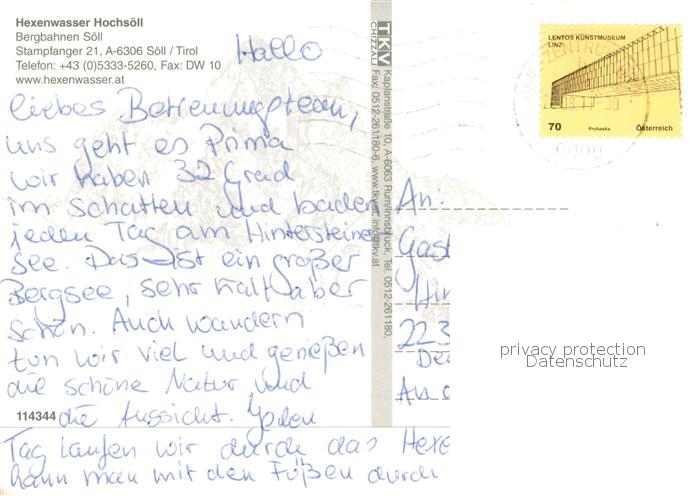 Hexenwasser Hochsöll
Bergbahnen Söll
Stampfanger 21, A-6306 Söll / Tirol
Telefon: +43 (0)5333-5260, Fax: DW 10
www.hexenwasser.at
TKV
CHIZZALI
Kaplanstraße 10, A-6063 Rum/Innsbruck, Tel. 0512-261180,
Fax: 0512-261180-6, www.tkv.at, info@tkv.at
LENTOS KUNSTMUSEUM
LINZ
70
Prohaska
Österreich
Hallo
liebes Betreuungsteam,
uns geht es Prima
wir haben 32 Grad
im Schatten und baden
jeden Tag am Hintersteiner
see. Das ist ein großer
Bergsee, sehr kalt aber
schön. Auch wandern
tun wir viel und genießen
die schöne Natur und
die Aussicht. Jeden
Tag laufen wir durch das Hexe
kann man mit den Füßen durch
114344
An
Gast
Hin
223
De
An d
privacy protection
Datenschutz